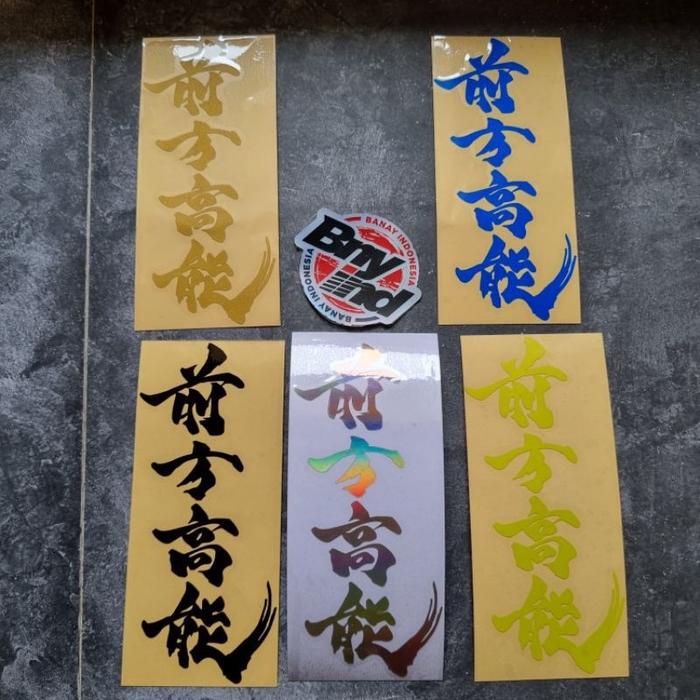 前方高能
前方高能
BANAY INDONESIA
Bny
ind
BANAY INDONESIA
前方高能
前方高能
前方高能